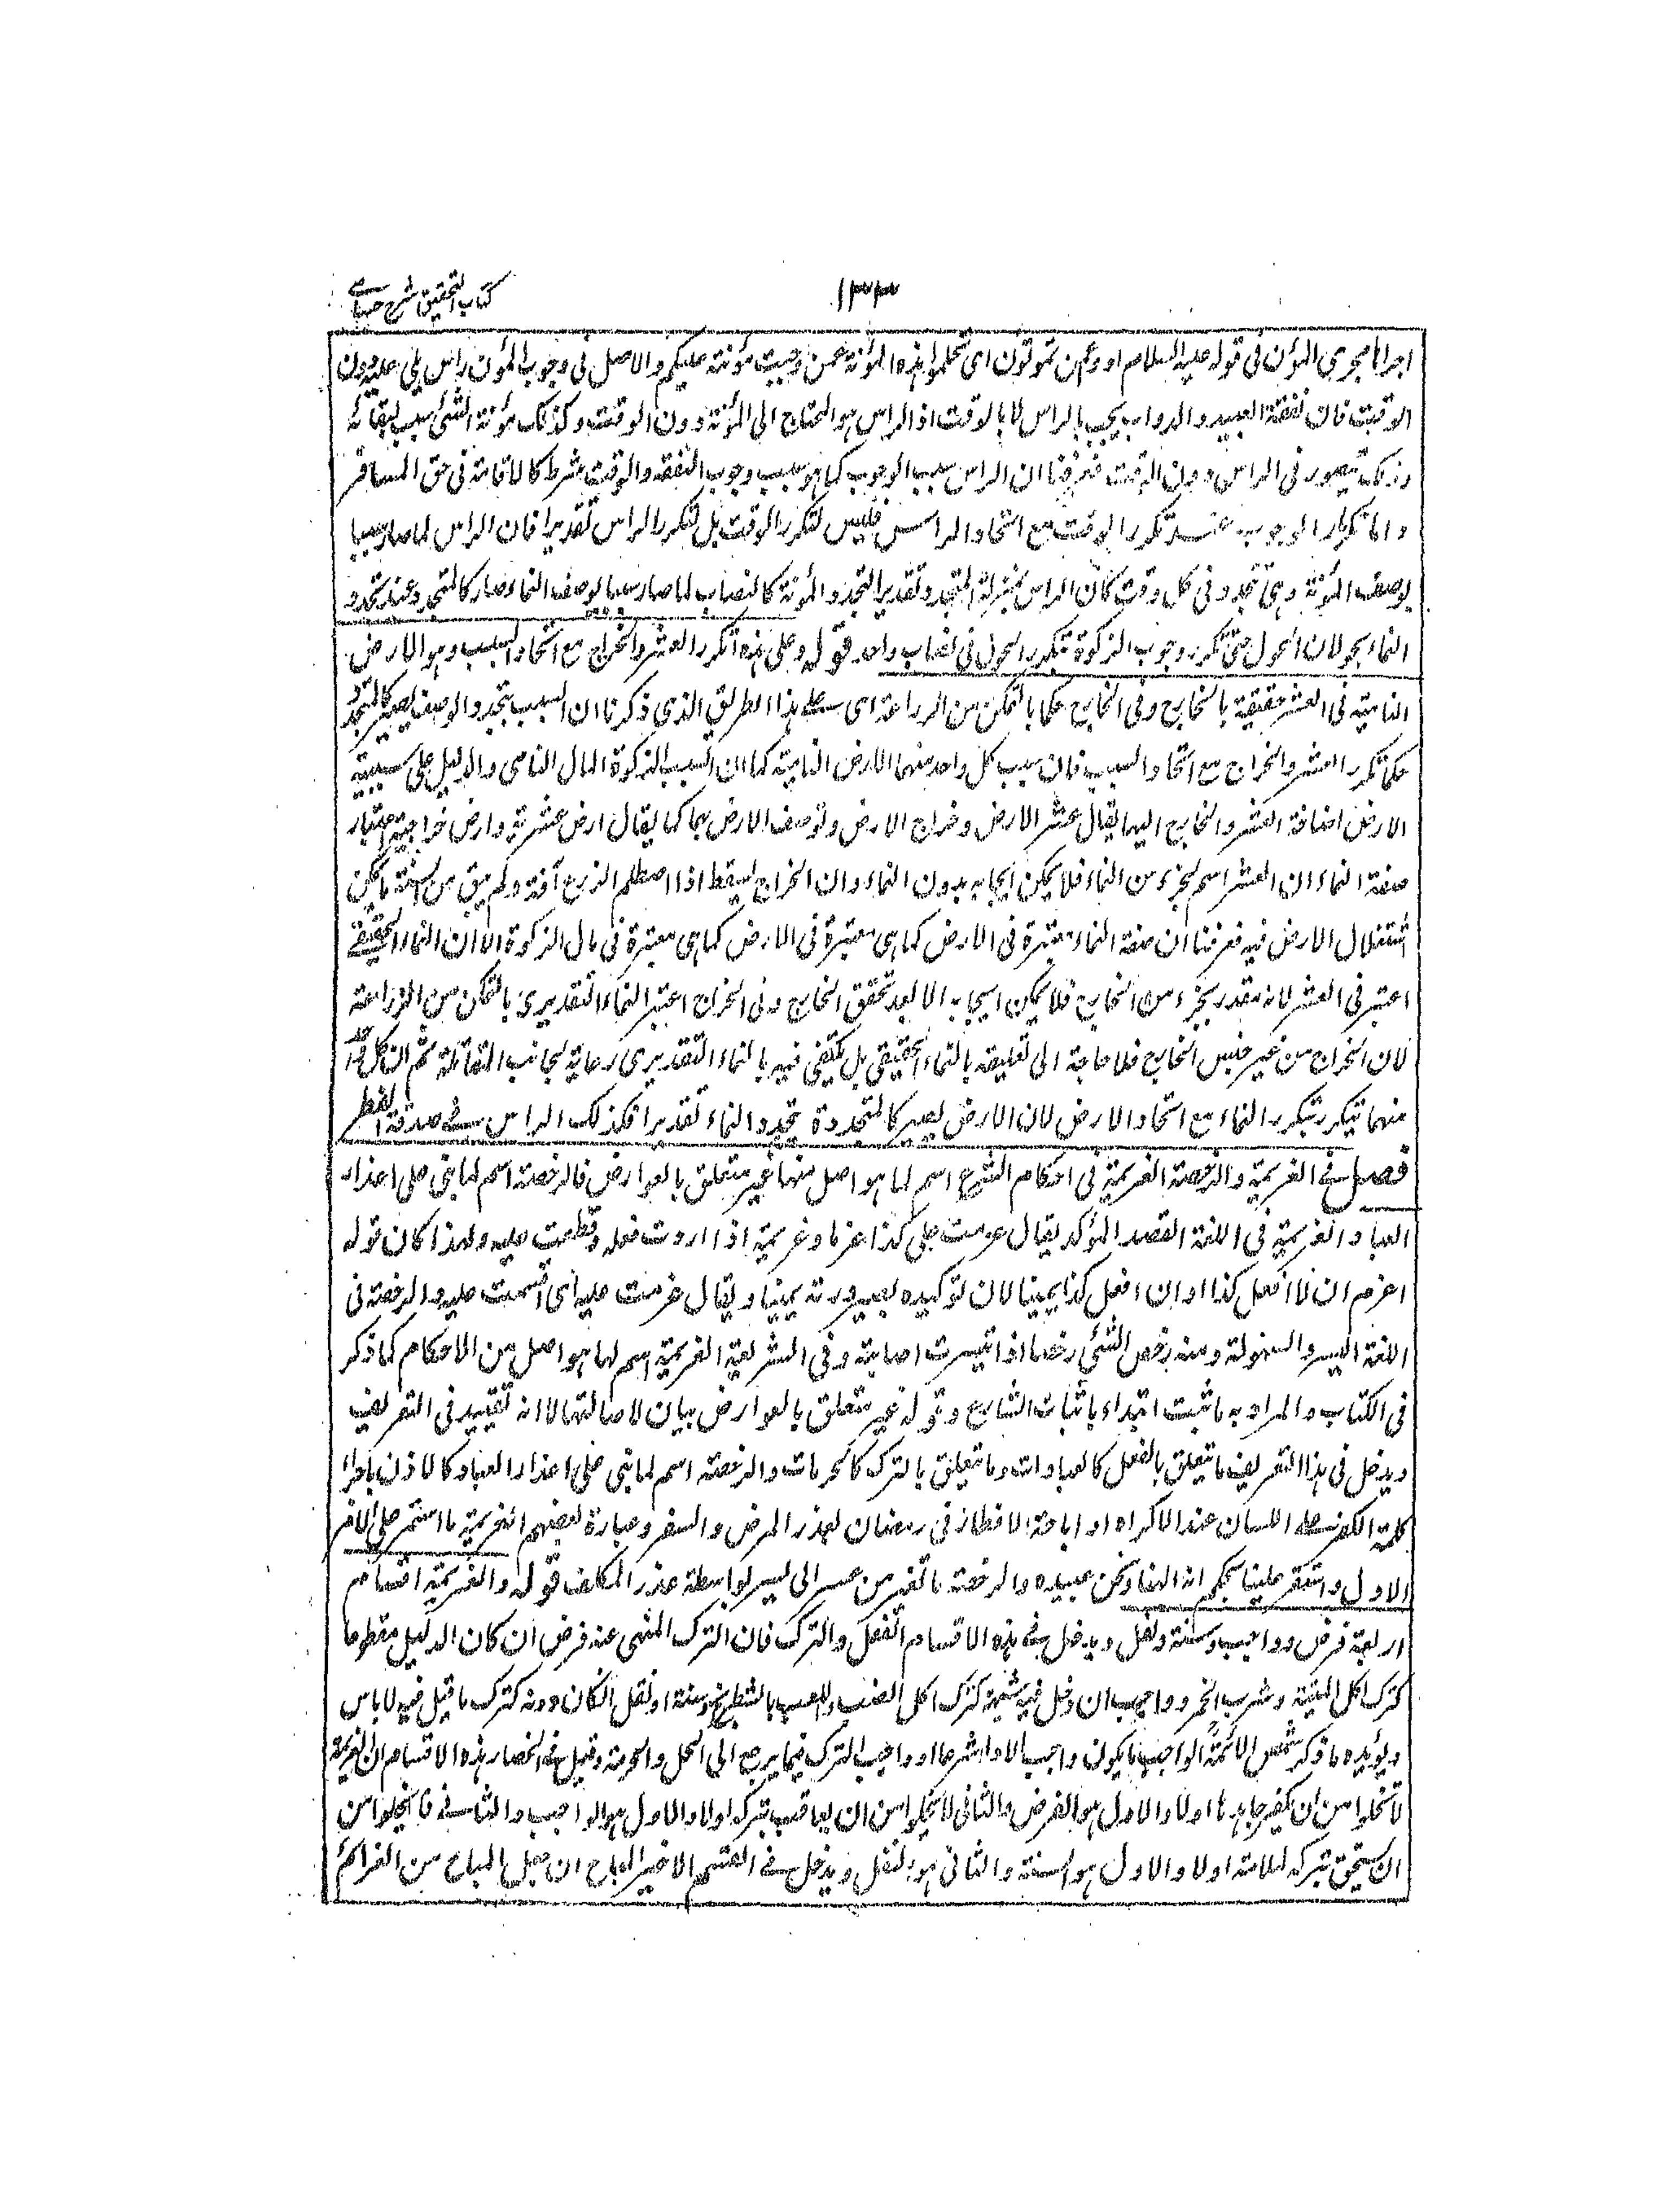 ١٣٣
كتاب التحقيق شرح حسامى
اجراها مجرى المؤن فى قوله عليه السلام ادوا عمن تمونون اى تحملوا هذه المؤنة عمن وجبت مؤنته عليكم والاصل فى وجوب المؤن راس يلى عليه دون
الوقت فان نفقة العبيد والدواب يجب بالراس لا بالوقت اذ الراس هو المحتاج الى المؤنة دون الوقت وكذلك مؤنة الشئ سبب لبقائه
وذلك يتصور فى الراس دون الوقت فعرفنا ان الراس سبب الوجوب كما هو سبب وجوب النفقة والوقت شرط كالاقامة فى حق المسافر
واما تكرار الوجوب عند تكرر الوقت مع اتحاد الراس فليس لتكرر الوقت بل لتكرر الراس تقديرا فان الراس لما صار سببا
بوصف المؤنة وهى تتجدد فى كل وقت كان الراس بمنزلة المتجدد تقديرا لتجدد المؤنة كالنصاب لما صار سببا لوصف النماء صار كالمتجدد عند تجدد
النماء بحولان الحول حتى تكرر وجوب الزكوة بتكرر الحول فى نصاب واحد قوله وعلى هذه تكرر العشر والخراج مع اتحاد السبب وهو الارض
النامية فى العشر حقيقية بالخارج وفى الخارج حكما بالتمكن من الزراعة اى على هذا الطريق الذى ذكرنا ان السبب بتجدد الوصف يصير كالمتجدد
حكما تكرر العشر والخراج مع اتحاد السبب فان سبب كل واحد منهما الارض النامية كما ان السبب الزكوة المال النامى والدليل على سببية
الارض اضافة العشر والخارج اليها يقال عشر الارض وخراج الارض وتوصف الارض بهما كما يقال ارض عشرية وارض خراجية واعتبار
صفة النماء ان العشر اسم لجزء من النماء فلا يمكن ايجابه بدون النماء وان الخراج يسقط اذا اصطلم الزرع آفة ولم يبق من السنة ما يمكن
اشتغلال الارض فيه فعرفنا ان صفة النماء معتبرة فى الارض كما هى معتبرة فى الارض كما هى معتبرة فى مال الزكوة الا ان النماء الحقيقى
اعتبر فى العشر لانه مقدر بجزء من الخارج فلا يمكن ايجابه الا بعد تحقق الخارج وفى الخراج اعتبر النماء التقديرى بالتمكن من الزراعة
لان الخراج من غير جنس الخارج فلا حاجة الى تعليقه بالنماء الحقيقى بل يكتفى فيه بالنماء التقديرى رعاية لجانب المقاتلة ثم ان كل واحد
منهما يتكرر بتكرر النماء مع اتحاد الارض لان الارض يصير كالمتجددة بتجدد النماء تقديرا فكذلك الراس فى صدقة الفطر
فصل فى العزيمة والرخصة العزيمة فى احكام الشرع اسم لما هو اصل منها غير متعلق بالعوارض فالرخصة اسم لما بنى على اعذار
العباد العزيمة فى اللغة القصد المؤكد يقال عزمت على كذا عزما وعزيمة اذا اردت فعله وقطعت عليه ولهذا كان قوله
اعزم ان لا افعل كذا او ان افعل كذا يمينا لان توكيده بصيرورته يمينا ويقال عزمت عليه اى اقسمت عليه والرخصة فى
اللغة اليسر والسهولة ومنه رخص الشئ رخصا اذا تيسرت اصابته وفى الشريعة العزيمة اسم لما هو اصل من الاحكام كما ذكر
فى الكتاب والمراد به ما ثبت ابتداء باثبات الشارع وقوله غير متعلق بالعوارض بيان لاصالتها لا انه تقييد فى التعريف
ويدخل فى هذا التعريف ما يتعلق بالفعل كالعبادات وما يتعلق بالترك كالحرمات والرخصة اسم لما بنى على اعذار العباد كالاذن باجراء
كلمة الكفر على اللسان عند الاكراه او اباحة الافطار فى رمضان لعذر المرض والسفر وعبارة بعضهم العزيمة ما استمر على الامر
الاول واستقر علينا بحكم انه الهنا ونحن عبيده والرخصة ما تغير من عسر الى يسر بواسطة عذر المكلف قوله والعزيمة اقسام
اربعة فرض وواجب وسنة ونفل ويدخل فى هذه الاقسام الفعل والترك فان الترك المنهى عنه فرض ان كان الدليل مقطوعا
كترك اكل الميتة وشرب الخمر وواجب ان دخل فيه شبهة كترك اكل الضب واللعب بالشطرنج وسنة او نفل ان كان دونه كترك ما قيل فيه لا باس
ويؤيده ما ذكر شمس الائمة الواجب ما يكون واجب الاداء شرعا او واجب الترك فيما يرجع الى الحل والحرمة وقيل فى انحصار هذه الاقسام ان العزيمة
لا تخلوا من ان يكفر جاحدها اولا والاول هو الفرض والثانى لا يخلوا من ان يعاقب بتركه اولا والاول هو الواجب والثانى فى ما يخلوا من
ان يستحق بتركه الملامة اولا والاول هو السنة والثانى هو النفل ويدخل فى القسم الاخير المباح ان جعل المباح من العزائم